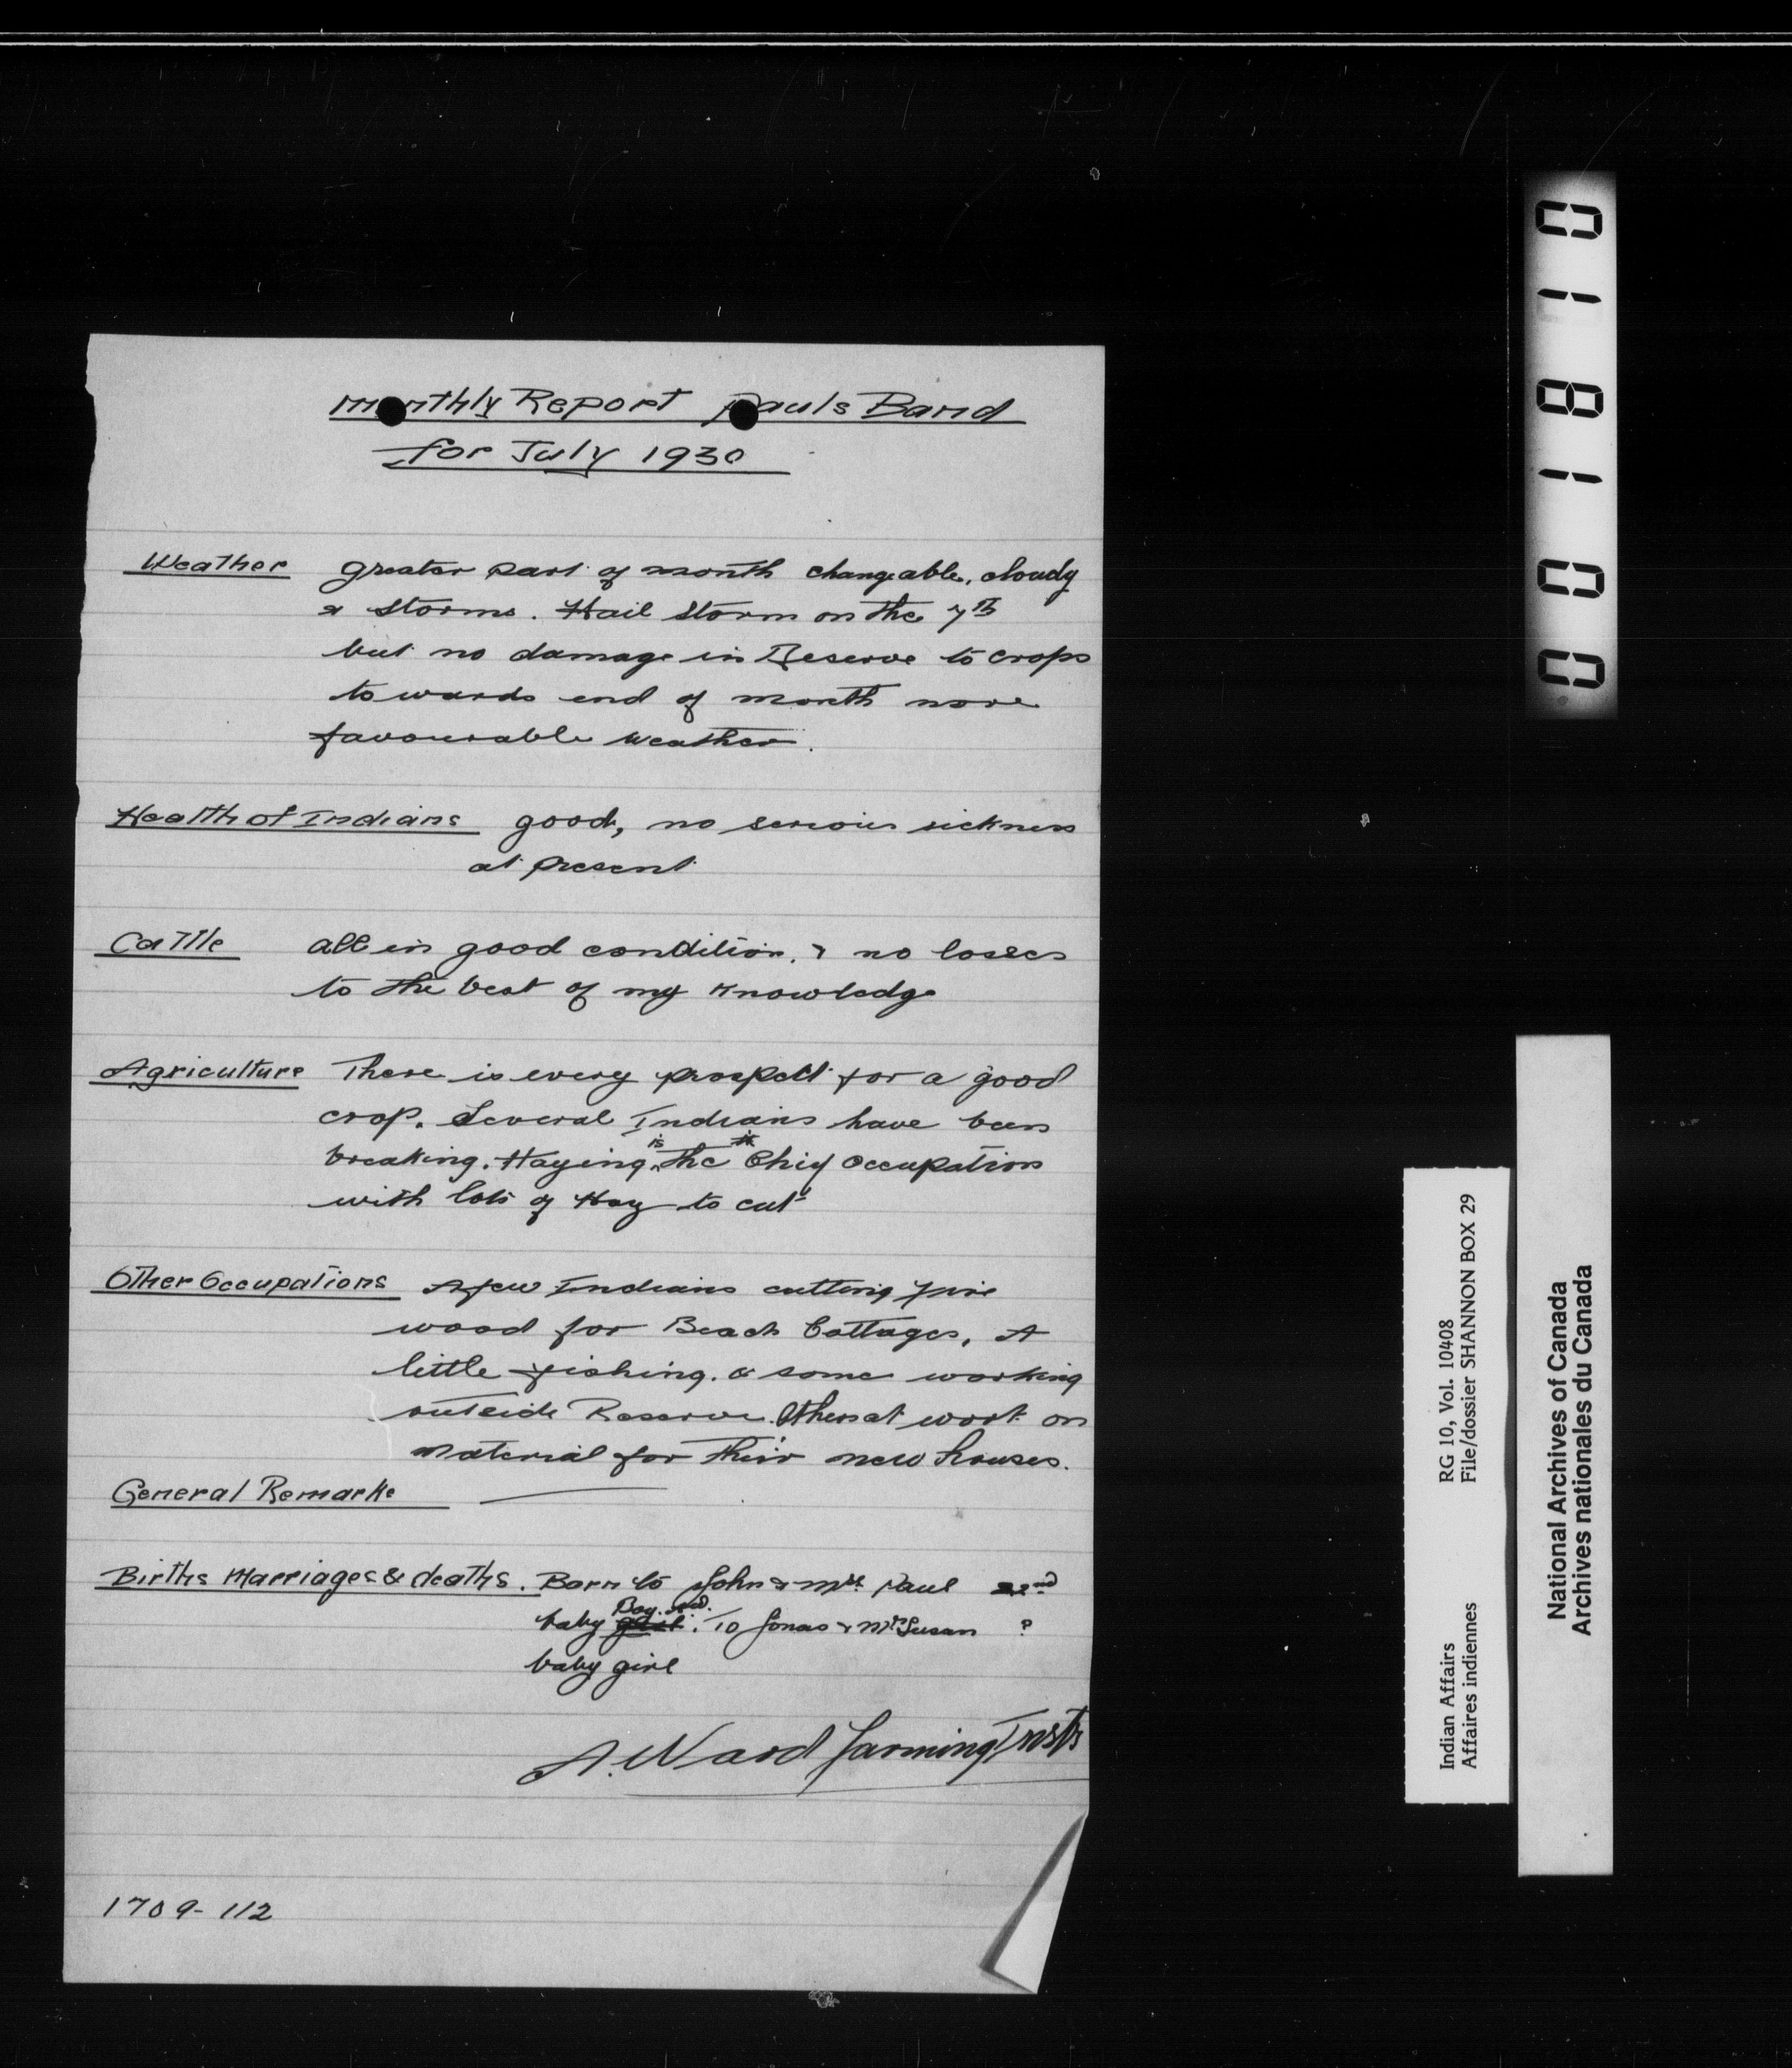 Monthly Report Pauls Band
for July 1930
Weather greater part of month changeable, cloudy
& storms. Hail storm on the 7th
but no damage in Reserve to crops
towards end of month more
favourable weather.
Health of Indians good, no serious sickness
at present
Cattle all in good condition, & no losses
to the best of my knowledge
Agriculture There is every prospect for a good
crop. Several Indians have been
breaking. Haying is the Chief occupation
with lots of Hay to cut
Other Occupations A few Indians cutting fire
wood for Beach Cottages, A
little fishing. & some working
outside Reserve. Others at work on
material for their new houses.
General Remarks
Births Marriages & deaths. Born to John & Mrs Paul
baby Boy. To Jonas & Mrs Susan ?
baby girl
A. Ward Farming Instr
1709-112
001810
Indian Affairs RG 10, Vol. 10408
Affaires indiennes File/dossier SHANNON BOX 29
National Archives of Canada
Archives nationales du Canada